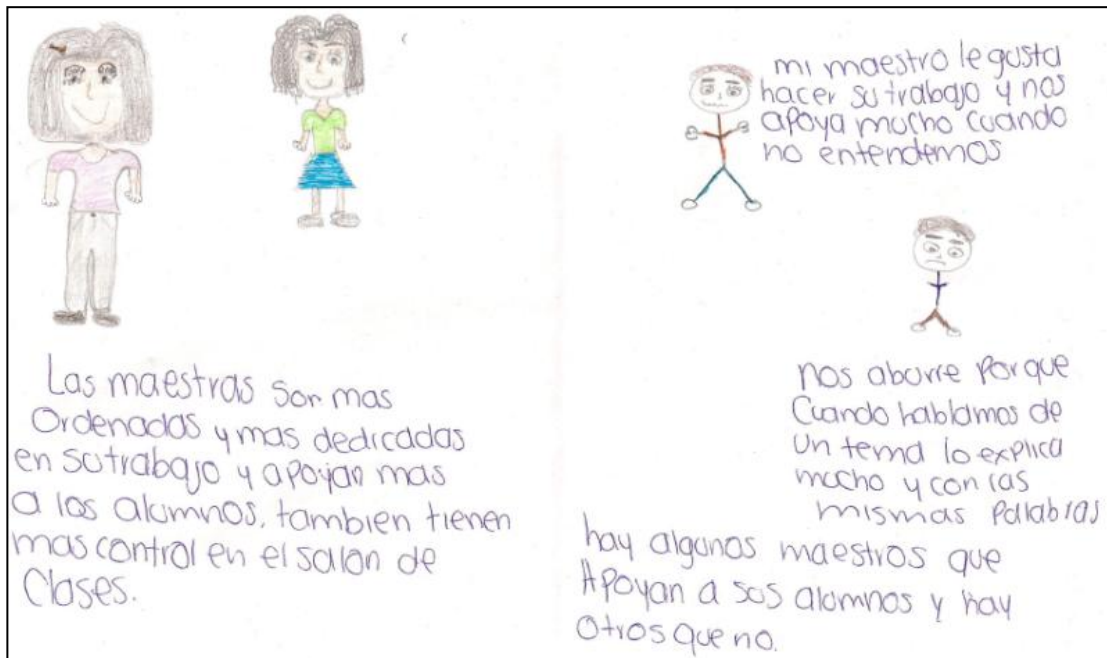 Las maestras son mas
Ordenadas y mas dedicadas
en su trabajo y apoyan mas
a los alumnos, tambien tienen
mas control en el salon de
Clases.
mi maestro le gusta
hacer su trabajo y nos
apoya mucho cuando
no entendemos
nos aburre Porque
Cuando hablamos de
un tema lo explica
mucho y con las
mismas Palabras
hay algunos maestros que
Apoyan a sus alumnos y hay
Otros que no.